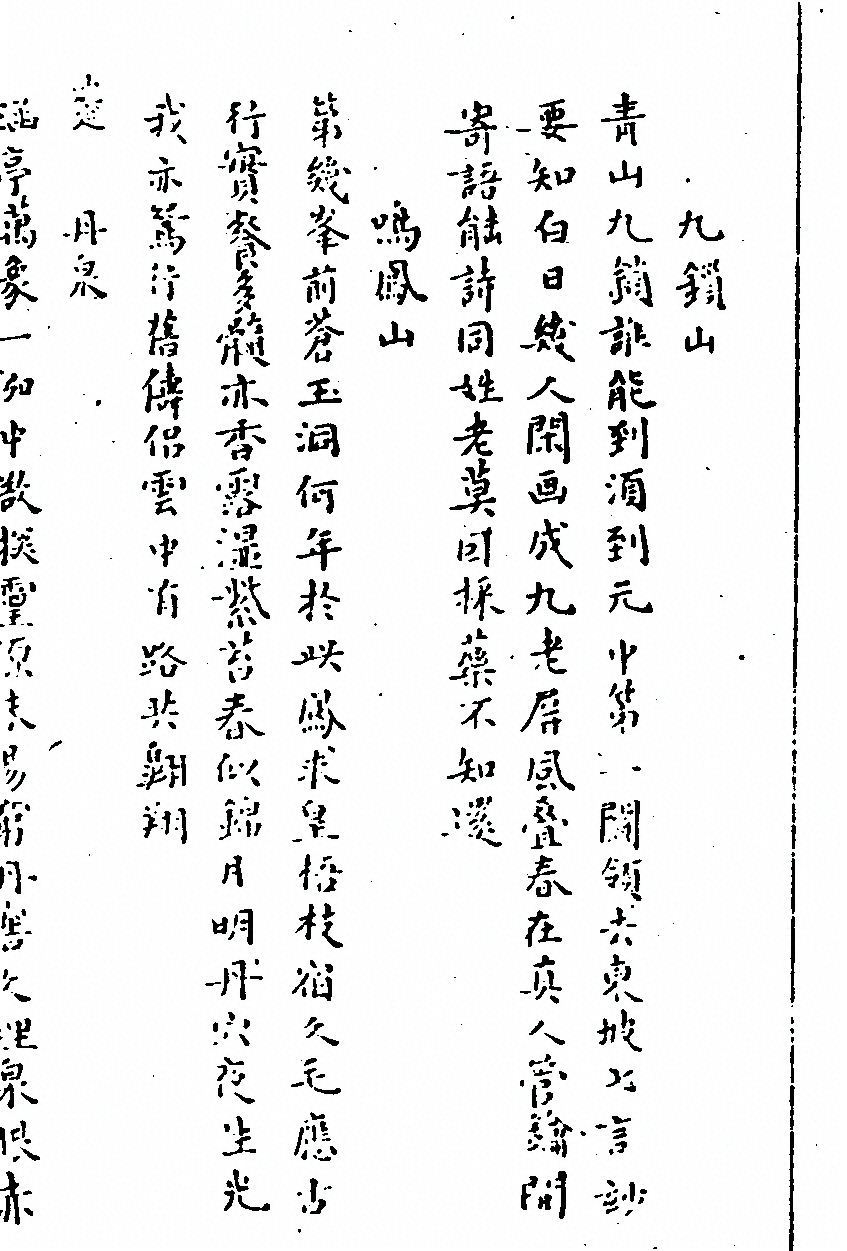 九鎖山
青山九鎖誰能到須到元中第一關領去東坡比言訬
要知白日幾人閑画成九老屏風疊春在真人管鑰間
寄語能詩同姓老莫因採藥不知還
鳴鳳山
第幾峯前蒼玉洞何年於此鳳求皇梧枝宿久毛應古
竹實餐多髓亦香露濕紫苔春似錦月明丹穴夜生光
我亦篤行舊儔侶雲中有路共翺翔
丹泉
亭萬象一卵中散擬靈源未易窮丹訾久埋泉眼赤